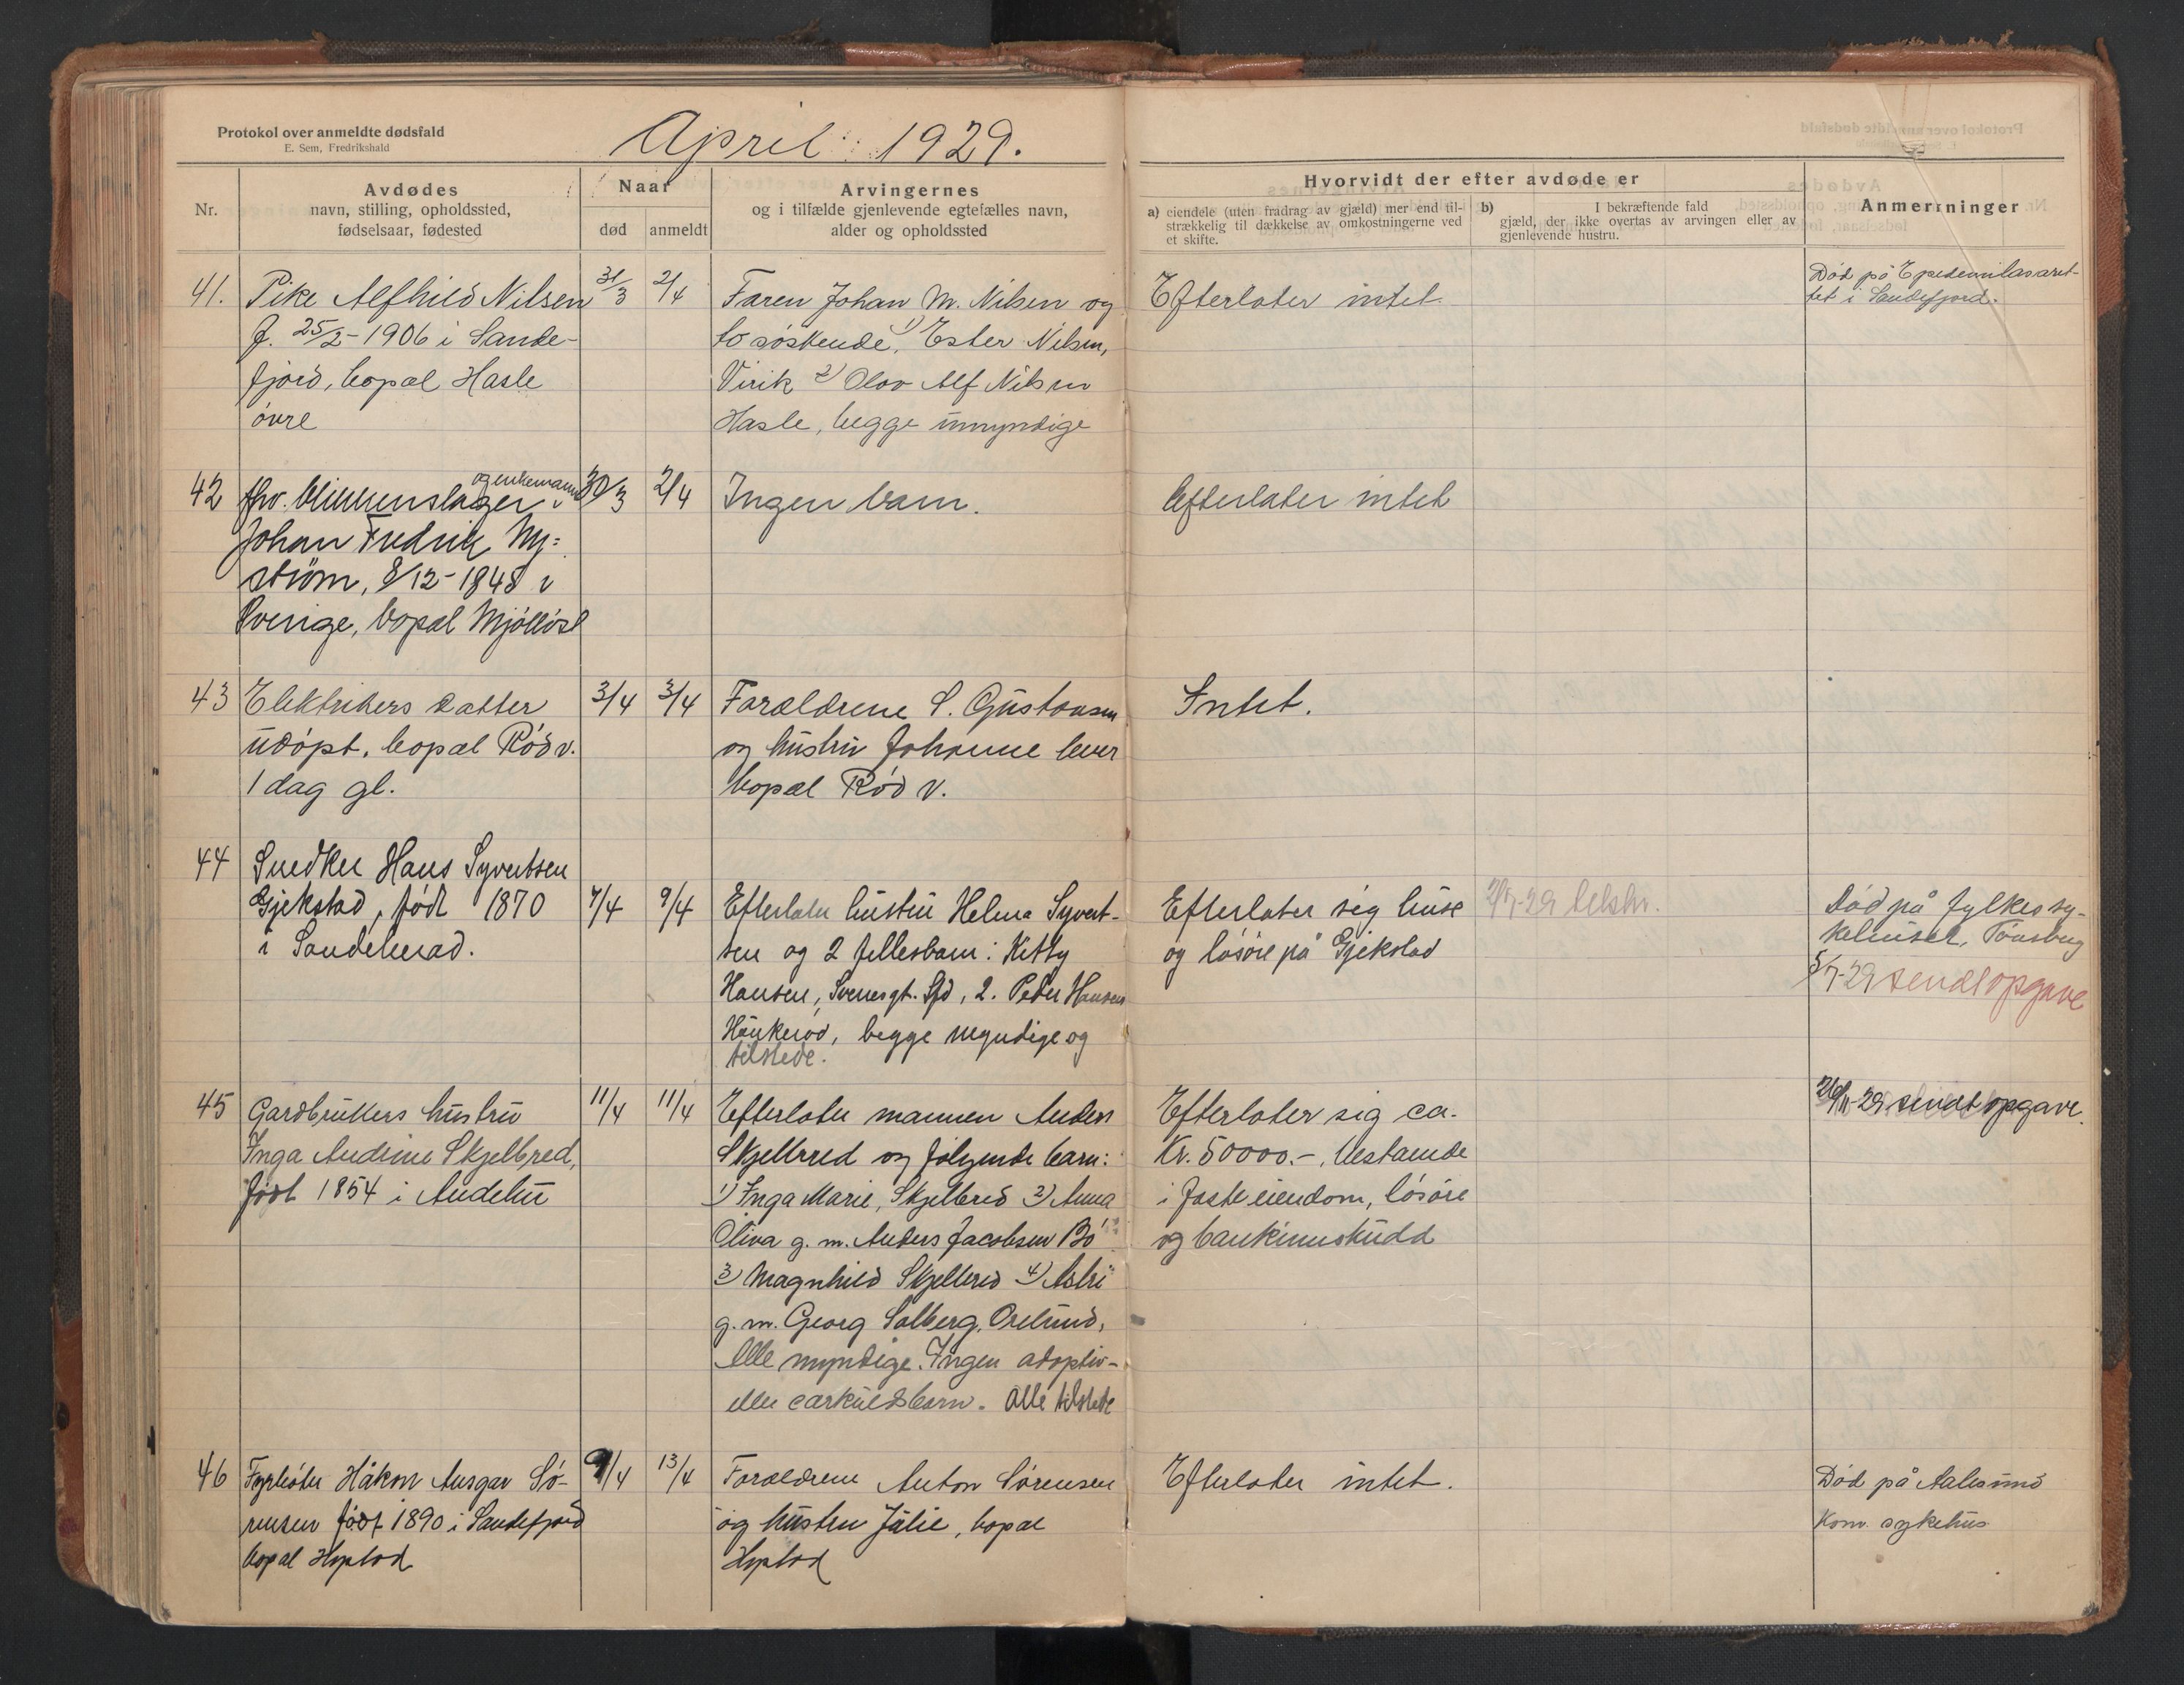 Protokol over anmeldte dødsfald
E. Sem, Fredrikshald
April 1929.
Nr.
Avdødes
navn, stilling, opholdssted,
fødselsaar, fødested
Naar
død
anmeldt
Arvingernes
og i tilfælde gjenlevende egtefælles navn,
alder og opholdssted
Hvorvidt der efter avdøde er
a) eiendele (uten fradrag av gjæld) mer end til-
strækkelig til dækkelse av omkostningerne ved
et skifte.
b) I bekræftende fald
gjæld, der ikke overtas av arvingen eller av
gjenlevende hustru.
Anmerkninger
41.
Pike Alfhild Nilsen
f. 25/2-1906 i Sande-
fjord, bopæl Hasle
övre
31/3
2/4
Faren Johan M. Nilsen og
to søskende, 1) Ester Nilsen,
Virik 2) Olav Alf Nilsen
Hasle, begge umyndige
Efterlater intet
Död på Epedemilasaret-
tet i Sandefjord.
42
fhv. blikkenslager og enkemann
Johan Fredrik Ny=
ström, 8/12-1848 i
Sverige, bopæl Mjölløst
30/3
2/4
Ingen barn.
Efterlater intet
43
Elektrikers datter
udöpt, bopæl Röd v.
1 dag gl.
3/4
3/4
Forældrene S. Gustavsen
og hustru Johanne lever
bopæl Röd v.
Intet.
44
Snedker Hans Syvertsen
Gjekstad, født 1870
i Sandeherad.
7/4
9/4
Efterlater hustru Helma Syvert-
sen og 2 fellesbarn: Kitty
Hansen, Svenesgt. Sfd, 2. Peder Hansen
Haukerød, begge myndige og
tilstede.
Efterlater sig huse
og lösöre på Gjekstad
Död på fylkessy-
kehuset, Tönsberg
5/7-29 sendt opgave
45
Gardbrukers hustru
Inga Andrine Skjelbred,
født 1854 i Andebu
11/4
11/4
Efterlater mannen Anders
Skjelbred og følgende barn:
1) Inga Marie, Skjelbred 2) Anna
Oliva g. m. Anders Jacobsen Bö
3) Magnhild Skjelbred 4) Astri
g. m. Georg Solberg, Orelund,
Alle myndige. Ingen adoptiv-
eller særkuldsbarn. Alle tilstede
Efterlater sig ca.
Kr. 50000.-, bestaende
i faste eiendom, lösöre
og bankinnskudd
-29 sendt opgave.
46
Fyrböter Håkon Ansgar Sö-
rensen født 1890 i Sandefjord
bopæl Hystad
9/4
13/4
Forældrene Anton Sörensen
og hustru Julie, bopæl
Hystad
Efterlater intet.
Död på Aalesund
Kom. sykehus